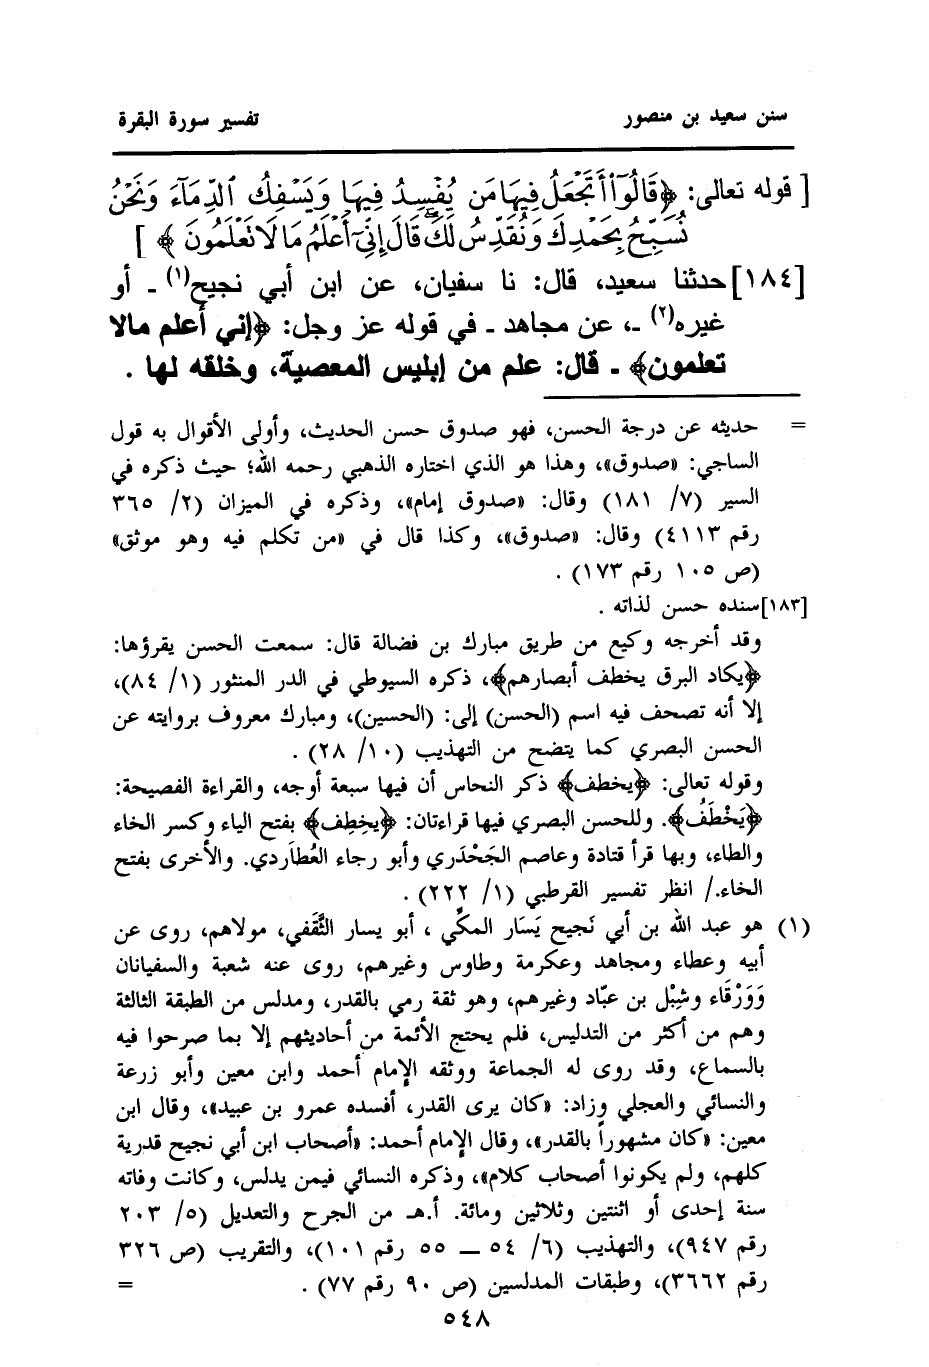 سنن سعيد بن منصور تفسير سورة البقرة
[ قوله تعالى: ﴿قَالُوٓا۟ أَتَجْعَلُ فِيهَا مَن يُفْسِدُ فِيهَا وَيَسْفِكُ ٱلدِّمَآءَ وَنَحْنُ
نُسَبِّحُ بِحَمْدِكَ وَنُقَدِّسُ لَكَ ۖ قَالَ إِنِّىٓ أَعْلَمُ مَا لَا تَعْلَمُونَ﴾ ]
[١٨٤] حدثنا سعيد، قال: نا سفيان، عن ابن أبي نجيح(١) ـ أو
غيره(٢) ـ، عن مجاهد ـ في قوله عز وجل: ﴿إني أعلم مالا
تعلمون﴾ ـ قال: علم من إبليس المعصية، وخلقه لها .
= حديثه عن درجة الحسن، فهو صدوق حسن الحديث، وأولى الأقوال به قول
الساجي: «صدوق»، وهذا هو الذي اختاره الذهبي رحمه الله؛ حيث ذكره في
السير (٧/ ١٨١) وقال: «صدوق إمام»، وذكره في الميزان (٢/ ٣٦٥
رقم ٤١١٣) وقال: «صدوق»، وكذا قال في «من تكلم فيه وهو موثق»
(ص ١٠٥ رقم ١٧٣) .
[١٨٣] سنده حسن لذاته .
وقد أخرجه وكيع من طريق مبارك بن فضالة قال: سمعت الحسن يقرؤها:
﴿يكاد البرق يخطف أبصارهم﴾، ذكره السيوطي في الدر المنثور (١/ ٨٤)،
إلا أنه تصحف فيه اسم (الحسن) إلى: (الحسين)، ومبارك معروف بروايته عن
الحسن البصري كما يتضح من التهذيب (١٠/ ٢٨) .
وقوله تعالى: ﴿يخطف﴾ ذكر النحاس أن فيها سبعة أوجه، والقراءة الفصيحة:
﴿يَخْطَفُ﴾. وللحسن البصري فيها قراءتان: ﴿يخِطِف﴾ بفتح الياء وكسر الخاء
والطاء، وبها قرأ قتادة وعاصم الجَحْدَري وأبو رجاء العُطَاردي. والأخرى بفتح
الخاء./ انظر تفسير القرطبي (١/ ٢٢٢) .
(١) هو عبد الله بن أبي نَجيح يَسَار المكِّي ، أبو يسار الثَّقَفي، مولاهم، روى عن
أبيه وعطاء ومجاهد وعكرمة وطاوس وغيرهم، روى عنه شعبة والسفيانان
وَوَرْقَاء وشِبْل بن عبّاد وغيرهم، وهو ثقة رمي بالقدر، ومدلس من الطبقة الثالثة
وهم من أكثر من التدليس، فلم يحتج الأئمة من أحاديثهم إلا بما صرحوا فيه
بالسماع، وقد روى له الجماعة ووثقه الإمام أحمد وابن معين وأبو زرعة
والنسائي والعجلي وزاد: «كان يرى القدر، أفسده عمرو بن عبيد»، وقال ابن
معين: «كان مشهوراً بالقدر»، وقال الإمام أحمد: «أصحاب ابن أبي نجيح قدرية
كلهم، ولم يكونوا أصحاب كلام»، وذكره النسائي فيمن يدلس، وكانت وفاته
سنة إحدى أو اثنتين وثلاثين ومائة. أ.هـ من الجرح والتعديل (٥/ ٢٠٣
رقم ٩٤٧)، والتهذيب (٦/ ٥٤ ــ ٥٥ رقم ١٠١)، والتقريب (ص ٣٢٦
رقم ٣٦٦٢)، وطبقات المدلسين (ص ٩٠ رقم ٧٧) . =
٥٤٨